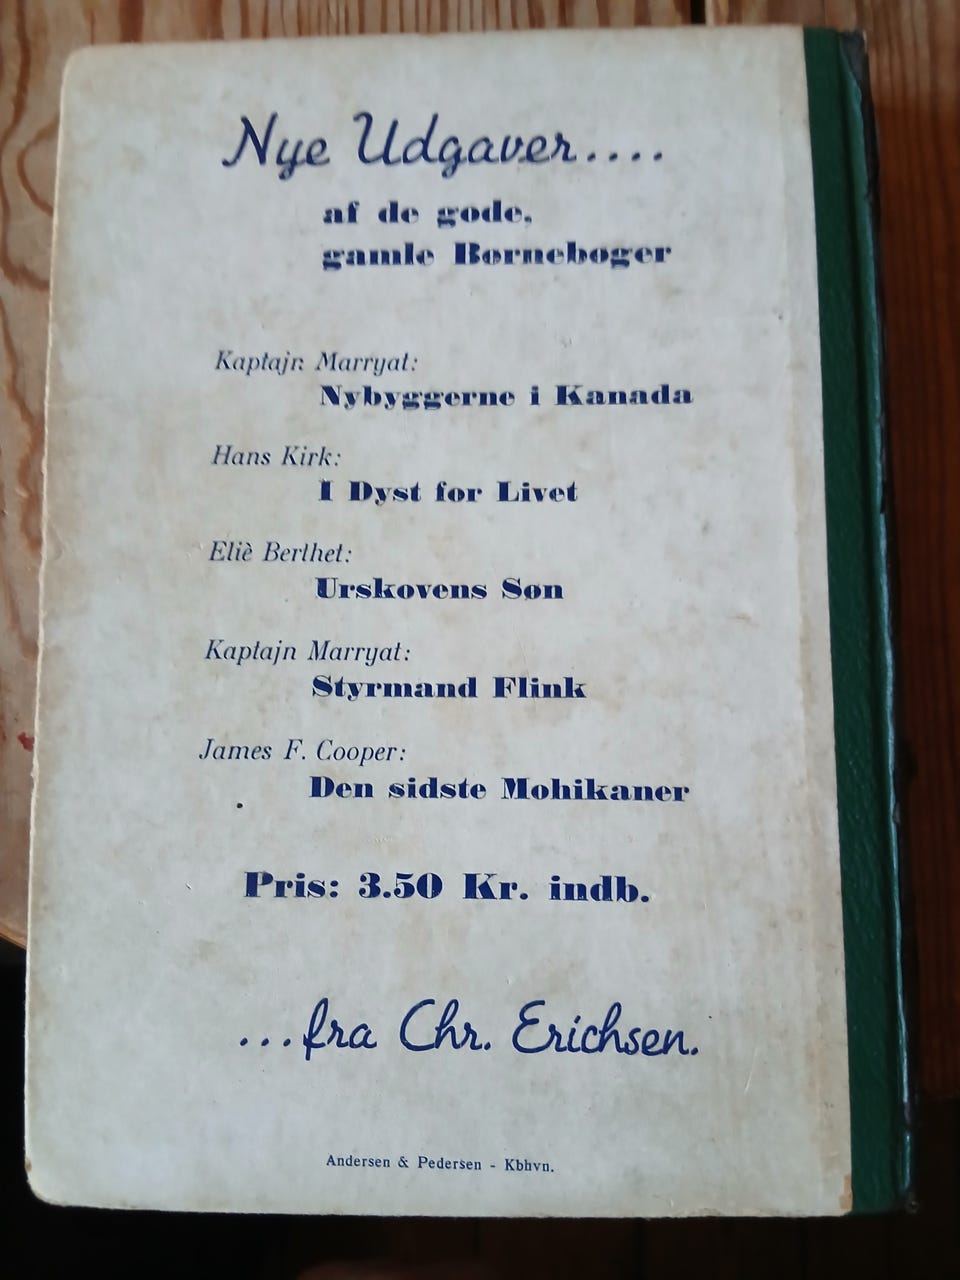 Nye Udgaver....
af de gode,
gamle Børnebøger
Kaptajn Marryat:
Nybyggerne i Kanada
Hans Kirk:
I Dyst for Livet
Eliè Berthet:
Urskovens Søn
Kaptajn Marryat:
Styrmand Flink
James F. Cooper:
Den sidste Mohikaner
Pris: 3.50 Kr. indb.
...fra Chr. Erichsen.
Andersen & Pedersen - Kbhvn.